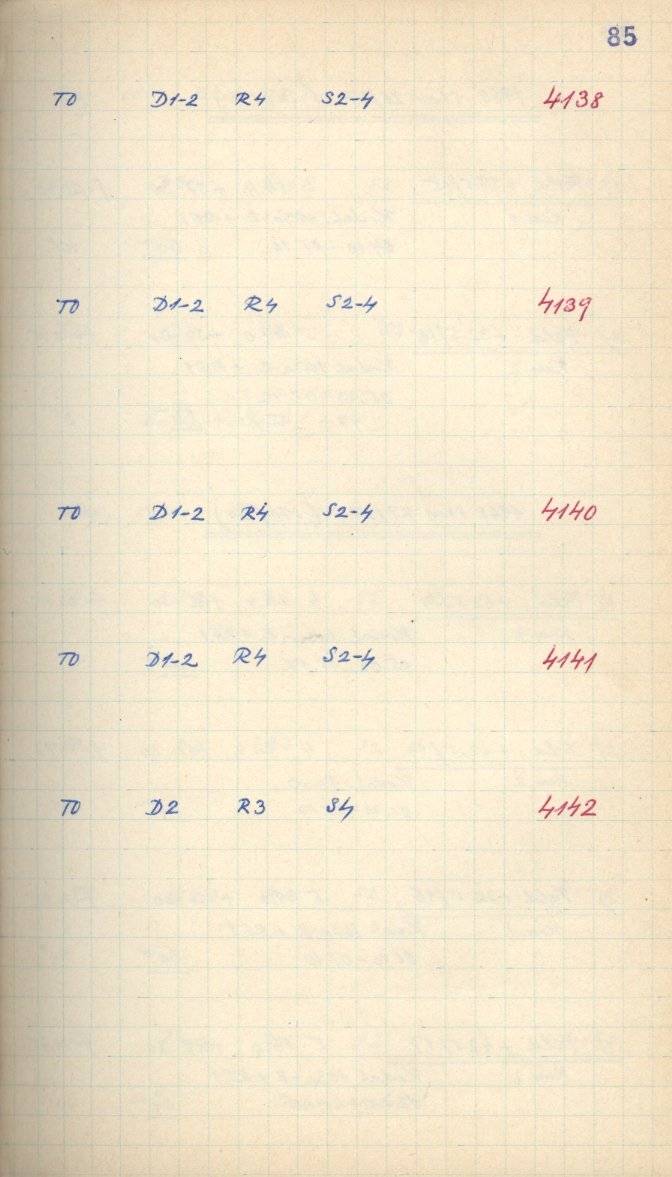 85
TO D1-2 R4 S2-4 4138
TO D1-2 R4 S2-4 4139
TO D1-2 R4 S2-4 4140
TO D1-2 R4 S2-4 4141
TO D2 R3 S4 4142